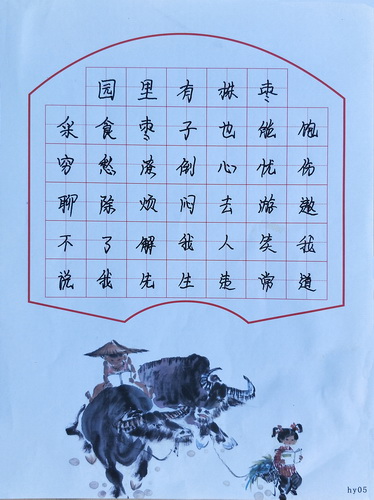 园里有株枣
采食枣子也能饱
穷愁潦倒心忧伤
聊除烦闷去游遨
不了解我人笑我
说我先生违常道
hy05